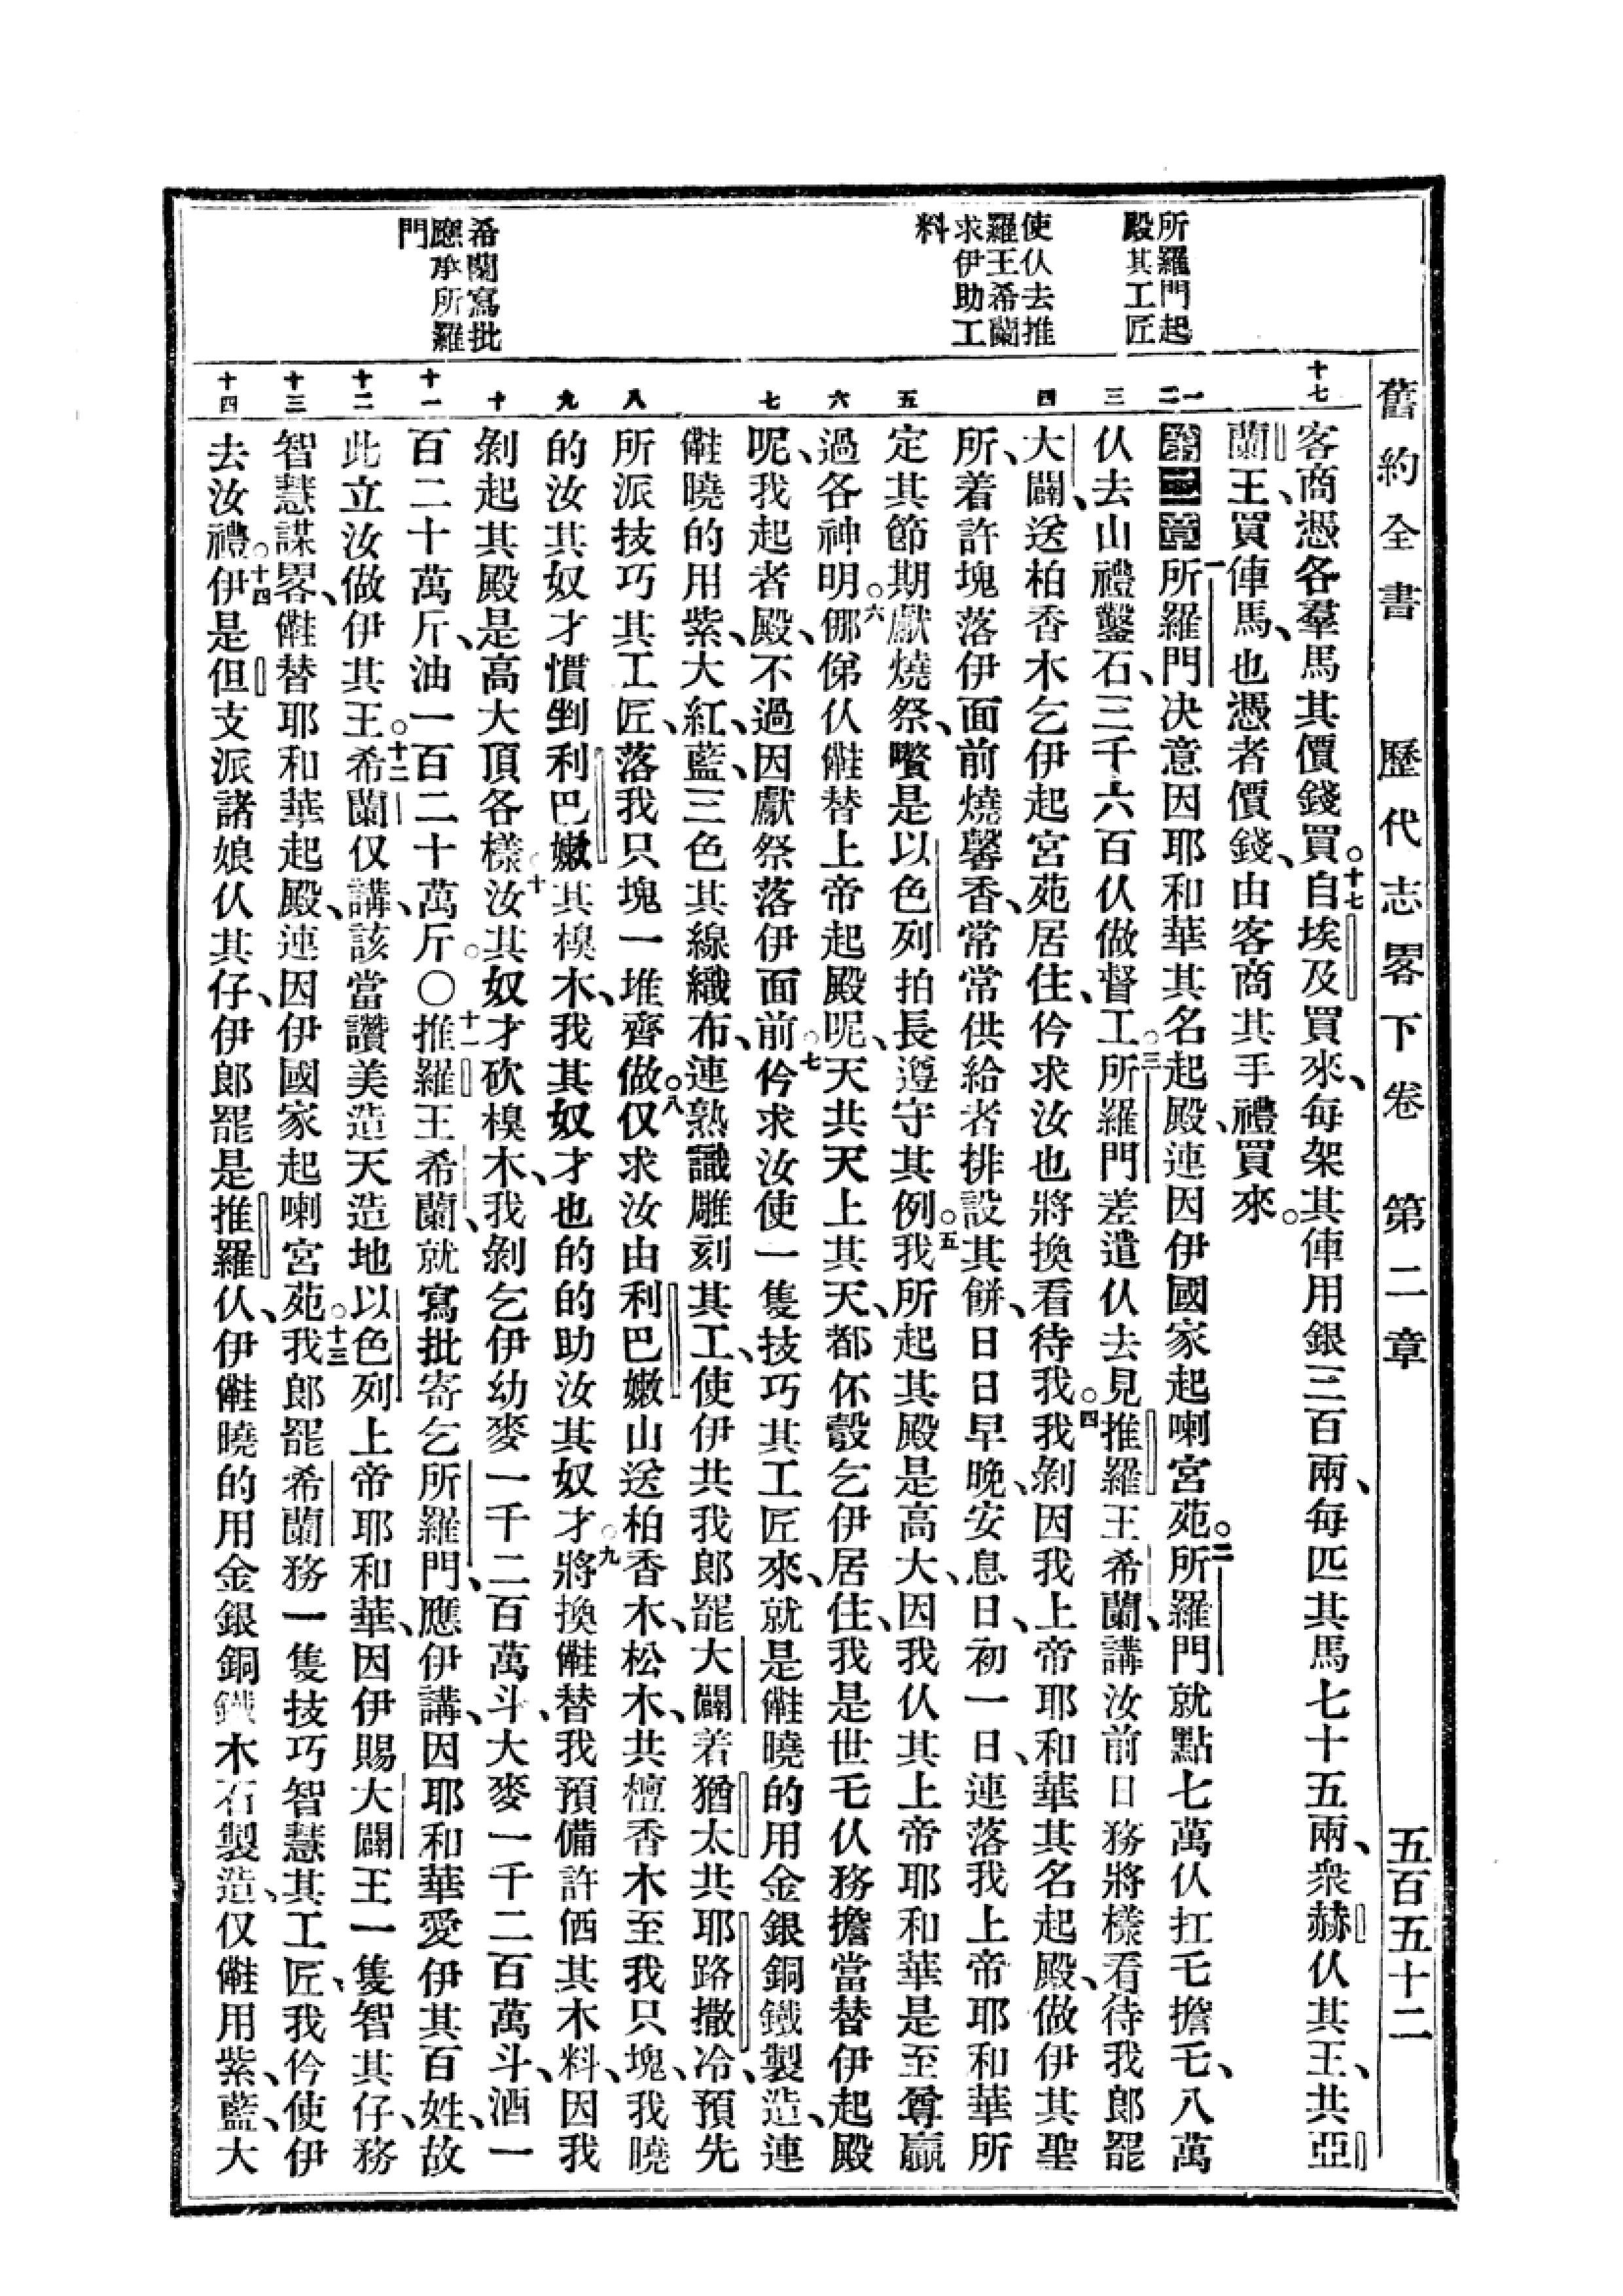 舊約全書　歷代志畧下卷　第二章　五百五十二
所羅門起
殿其工匠
使仈去推
羅王希蘭
求伊助工
料
希蘭寫批
應承所羅
門
十七
一
二
三
四
五
六
七
八
九
十
十一
十二
十三
十四
客商憑各羣馬其價錢買。十七自埃及買來、每架其俥用銀三百兩、每匹其馬七十五兩、衆赫仈其王、共亞
蘭王、買俥馬、也憑者價錢、由客商其手禮買來。
第二章 一所羅門决意因耶和華其名起殿、連因伊國家起喇宮苑。二所羅門就點七萬仈扛乇擔乇、八萬
仈去山禮鑿石、三千六百仈做督工。三所羅門差遣仈去見推羅王希蘭、講汝前日務將樣看待我郎罷
大闢、送柏香木乞伊起宮苑居住、仱求汝也將換看待我。四我剝因我上帝耶和華其名起殿、做伊其聖
所、着許塊落伊面前燒馨香、常常供給者排設其餅、日日早晚、安息日、初一日、連落我上帝耶和華所
定其節期獻燒祭、嚽是以色列拍長遵守其例。五我所起其殿是高大、因我仈其上帝耶和華是至尊贏
過各神明。六倻俤仈㑲替上帝起殿呢、天共天上其天、都伓彀乞伊居住、我是世乇仈務擔當替伊起殿
呢、我起者殿、不過因獻祭落伊面前。七仱求汝使一隻技巧其工匠來、就是㑲曉的用金銀銅鐵製造、連
㑲曉的用紫、大紅、藍、三色其線織布、連熟識雕刻其工、使伊共我郎罷大闢着猶太共耶路撒冷、預先
所派技巧其工匠、落我只塊一堆齊做。八仅求汝由利巴嫩山送柏香木、松木、共檀香木至我只塊、我曉
的汝其奴才慣剉利巴嫩其槺木、我其奴才也的的助汝其奴才。九將換㑲替我預備許価其木料、因我
剝起其殿是高大頂各樣。十汝其奴才砍槺木、我剝乞伊幼麥一千二百萬斗、大麥一千二百萬斗、酒一
百二十萬斤、油一百二十萬斤。〇十一推羅王希蘭、就寫批寄乞所羅門、應伊講、因耶和華愛伊其百姓、故
此立汝做伊其王。十二希蘭仅講、該當讚美造天造地以色列上帝耶和華、因伊賜大闢王一隻智其仔、務
智慧謀畧、㑲替耶和華起殿、連因伊國家起喇宮苑。十三我郎罷希蘭務一隻技巧智慧其工匠、我仱使伊
去汝禮。十四伊是但支派諸娘仈其仔、伊郎罷是推羅仈、伊㑲曉的用金銀銅鐵木石製造、仅㑲用紫、藍、大